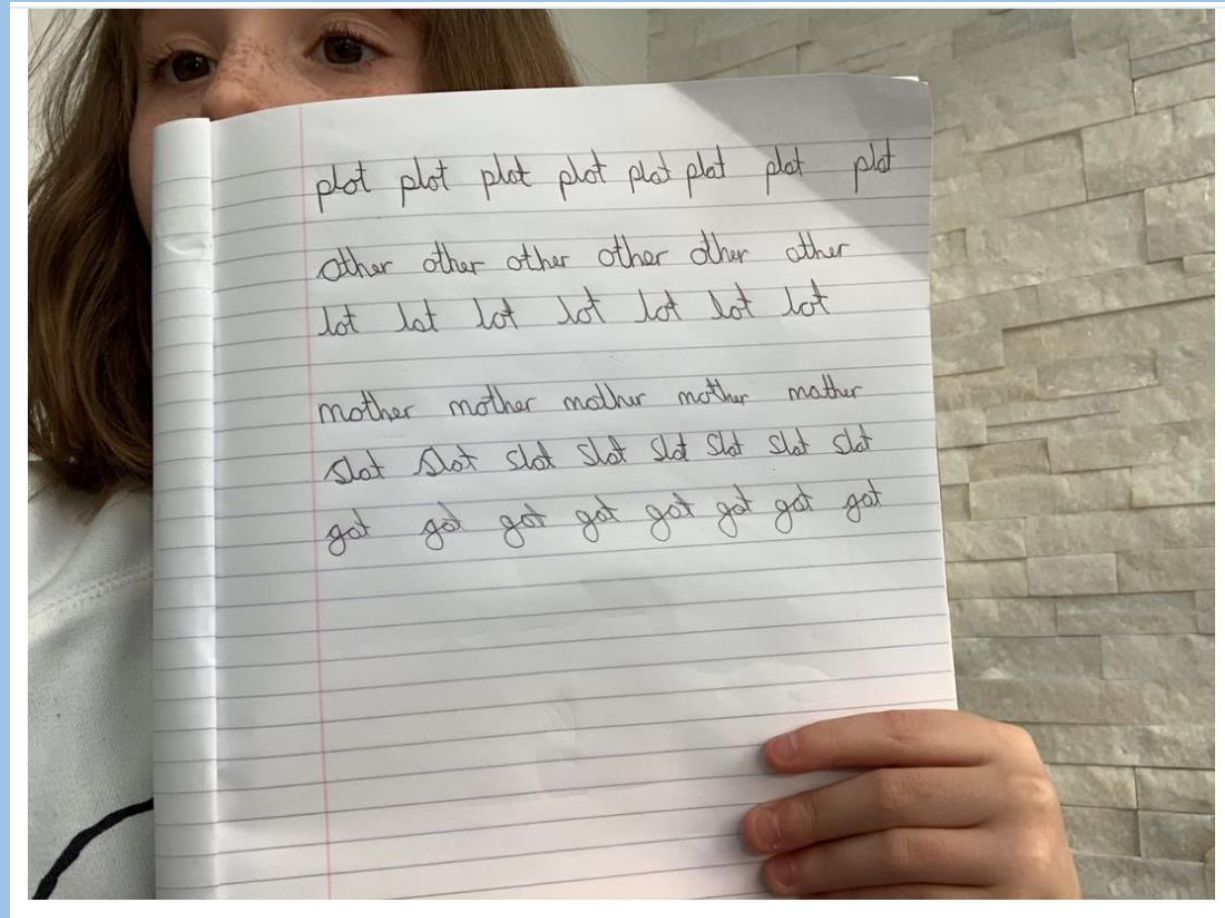 plot plot plot plot plot plot plot plot
other other other other other other
lot lot lot lot lot lot lot
mother mother mother mother mother
slot slot slot slot slot slot slot slot
got got got got got got got got